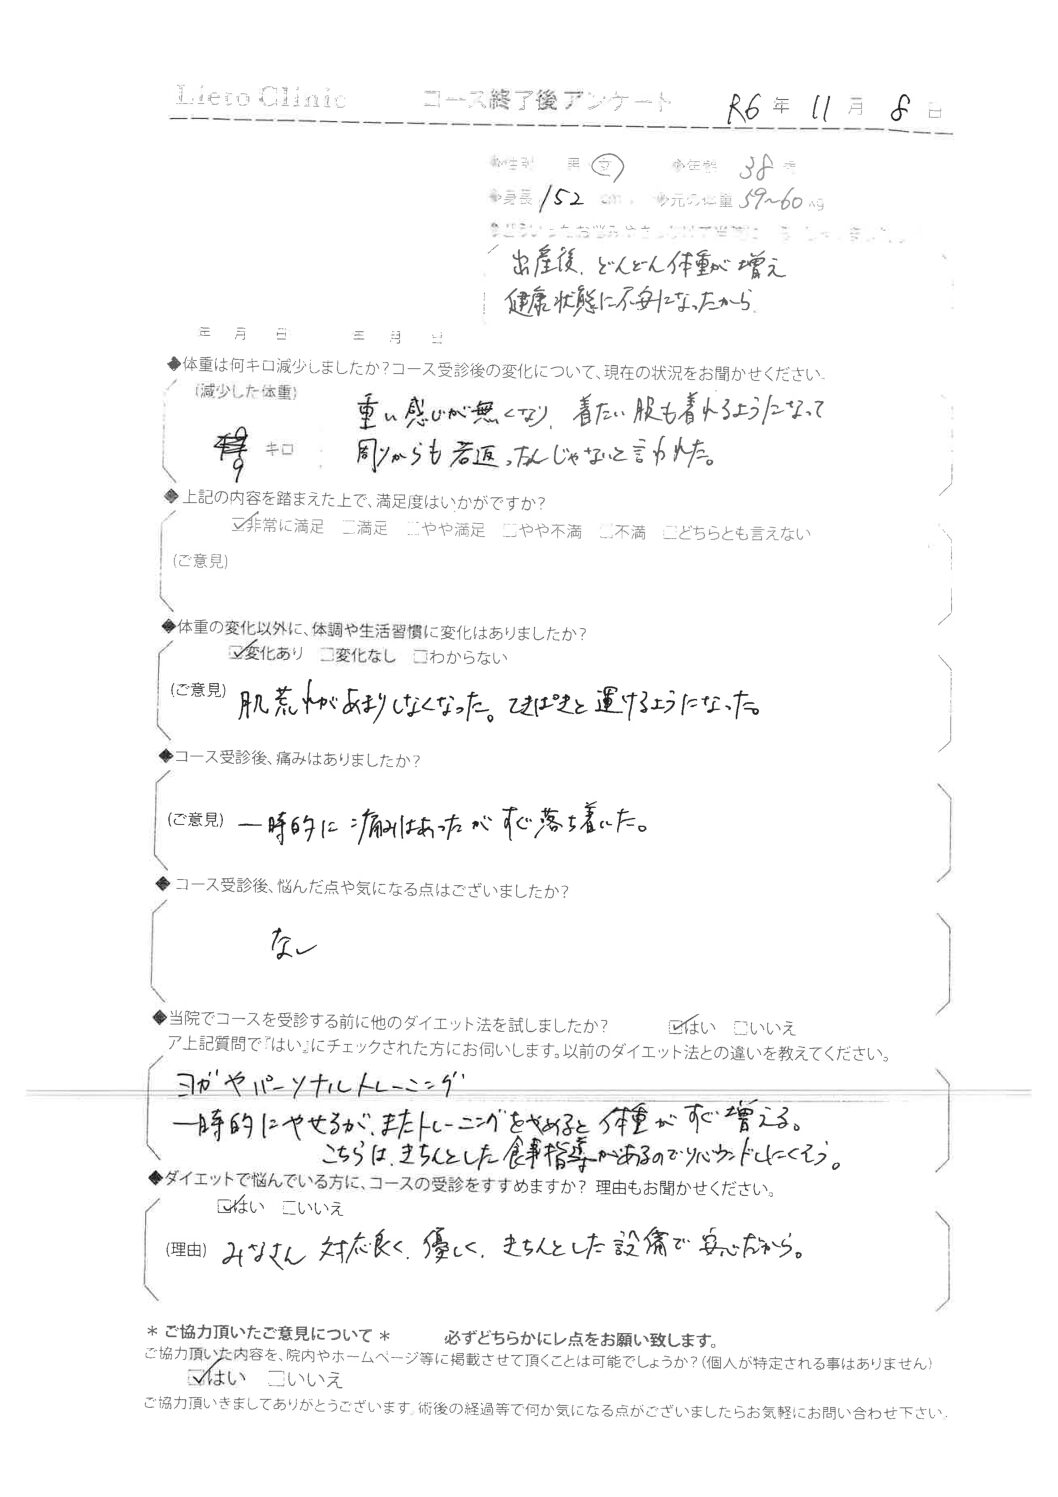 Lieto Clinic コース終了後アンケート R6年 11月 8日
◆性別 男 女 ◆年齢 38歳
◆身長 152 cm ◆元の体重 59~60 kg
出産後、どんどん体重が増え
健康状態に不安になったから
年 月 日 年 月 日
◆体重は何キロ減少しましたか?コース受診後の変化について、現在の状況をお聞かせください。
(減少した体重)
重い感じが無くなり、着たい服も着れるようになって
9 キロ
周りからも若返ったんじゃないと言われた。
◆上記の内容を踏まえた上で、満足度はいかがですか?
☑非常に満足 □満足 □やや満足 □やや不満 □不満 □どちらとも言えない
(ご意見)
◆体重の変化以外に、体調や生活習慣に変化はありましたか?
☑変化あり □変化なし □わからない
(ご意見) 肌荒れがあまりしなくなった。てきぱきと運けるようになった。
◆コース受診後、痛みはありましたか?
(ご意見) 一時的に痛みはあったがすぐ落ち着いた。
◆コース受診後、悩んだ点や気になる点はございましたか?
なし
◆当院でコースを受診する前に他のダイエット法を試しましたか? ☑はい □いいえ
ア上記質問で『はい』にチェックされた方にお伺いします。以前のダイエット法との違いを教えてください。
ヨガやパーソナルトレーニング
一時的にやせるが、またトレーニングをやめると体重がすぐ増える。
こちらは、きちんとした食事指導があるのでリバウンドしにくそう。
◆ダイエットで悩んでいる方に、コースの受診をすすめますか? 理由もお聞かせください。
☑はい □いいえ
(理由) みなさん対応良く、優しく、きちんとした設備で安心だから。
* ご協力頂いたご意見について * 必ずどちらかにレ点をお願い致します。
ご協力頂いた内容を、院内やホームページ等に掲載させて頂くことは可能でしょうか?(個人が特定される事はありません)
☑はい □いいえ
ご協力頂いきましてありがとうございます。術後の経過等で何か気になる点がございましたらお気軽にお問い合わせ下さい。